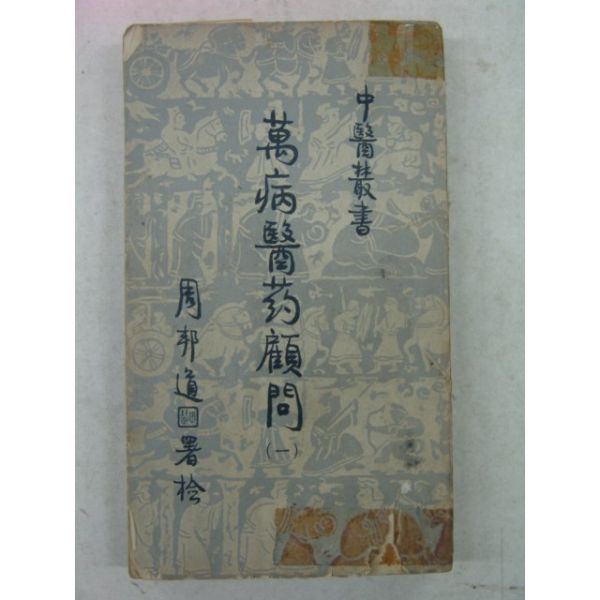 中醫叢書
萬病醫药顧問
(一)
周邦道署检